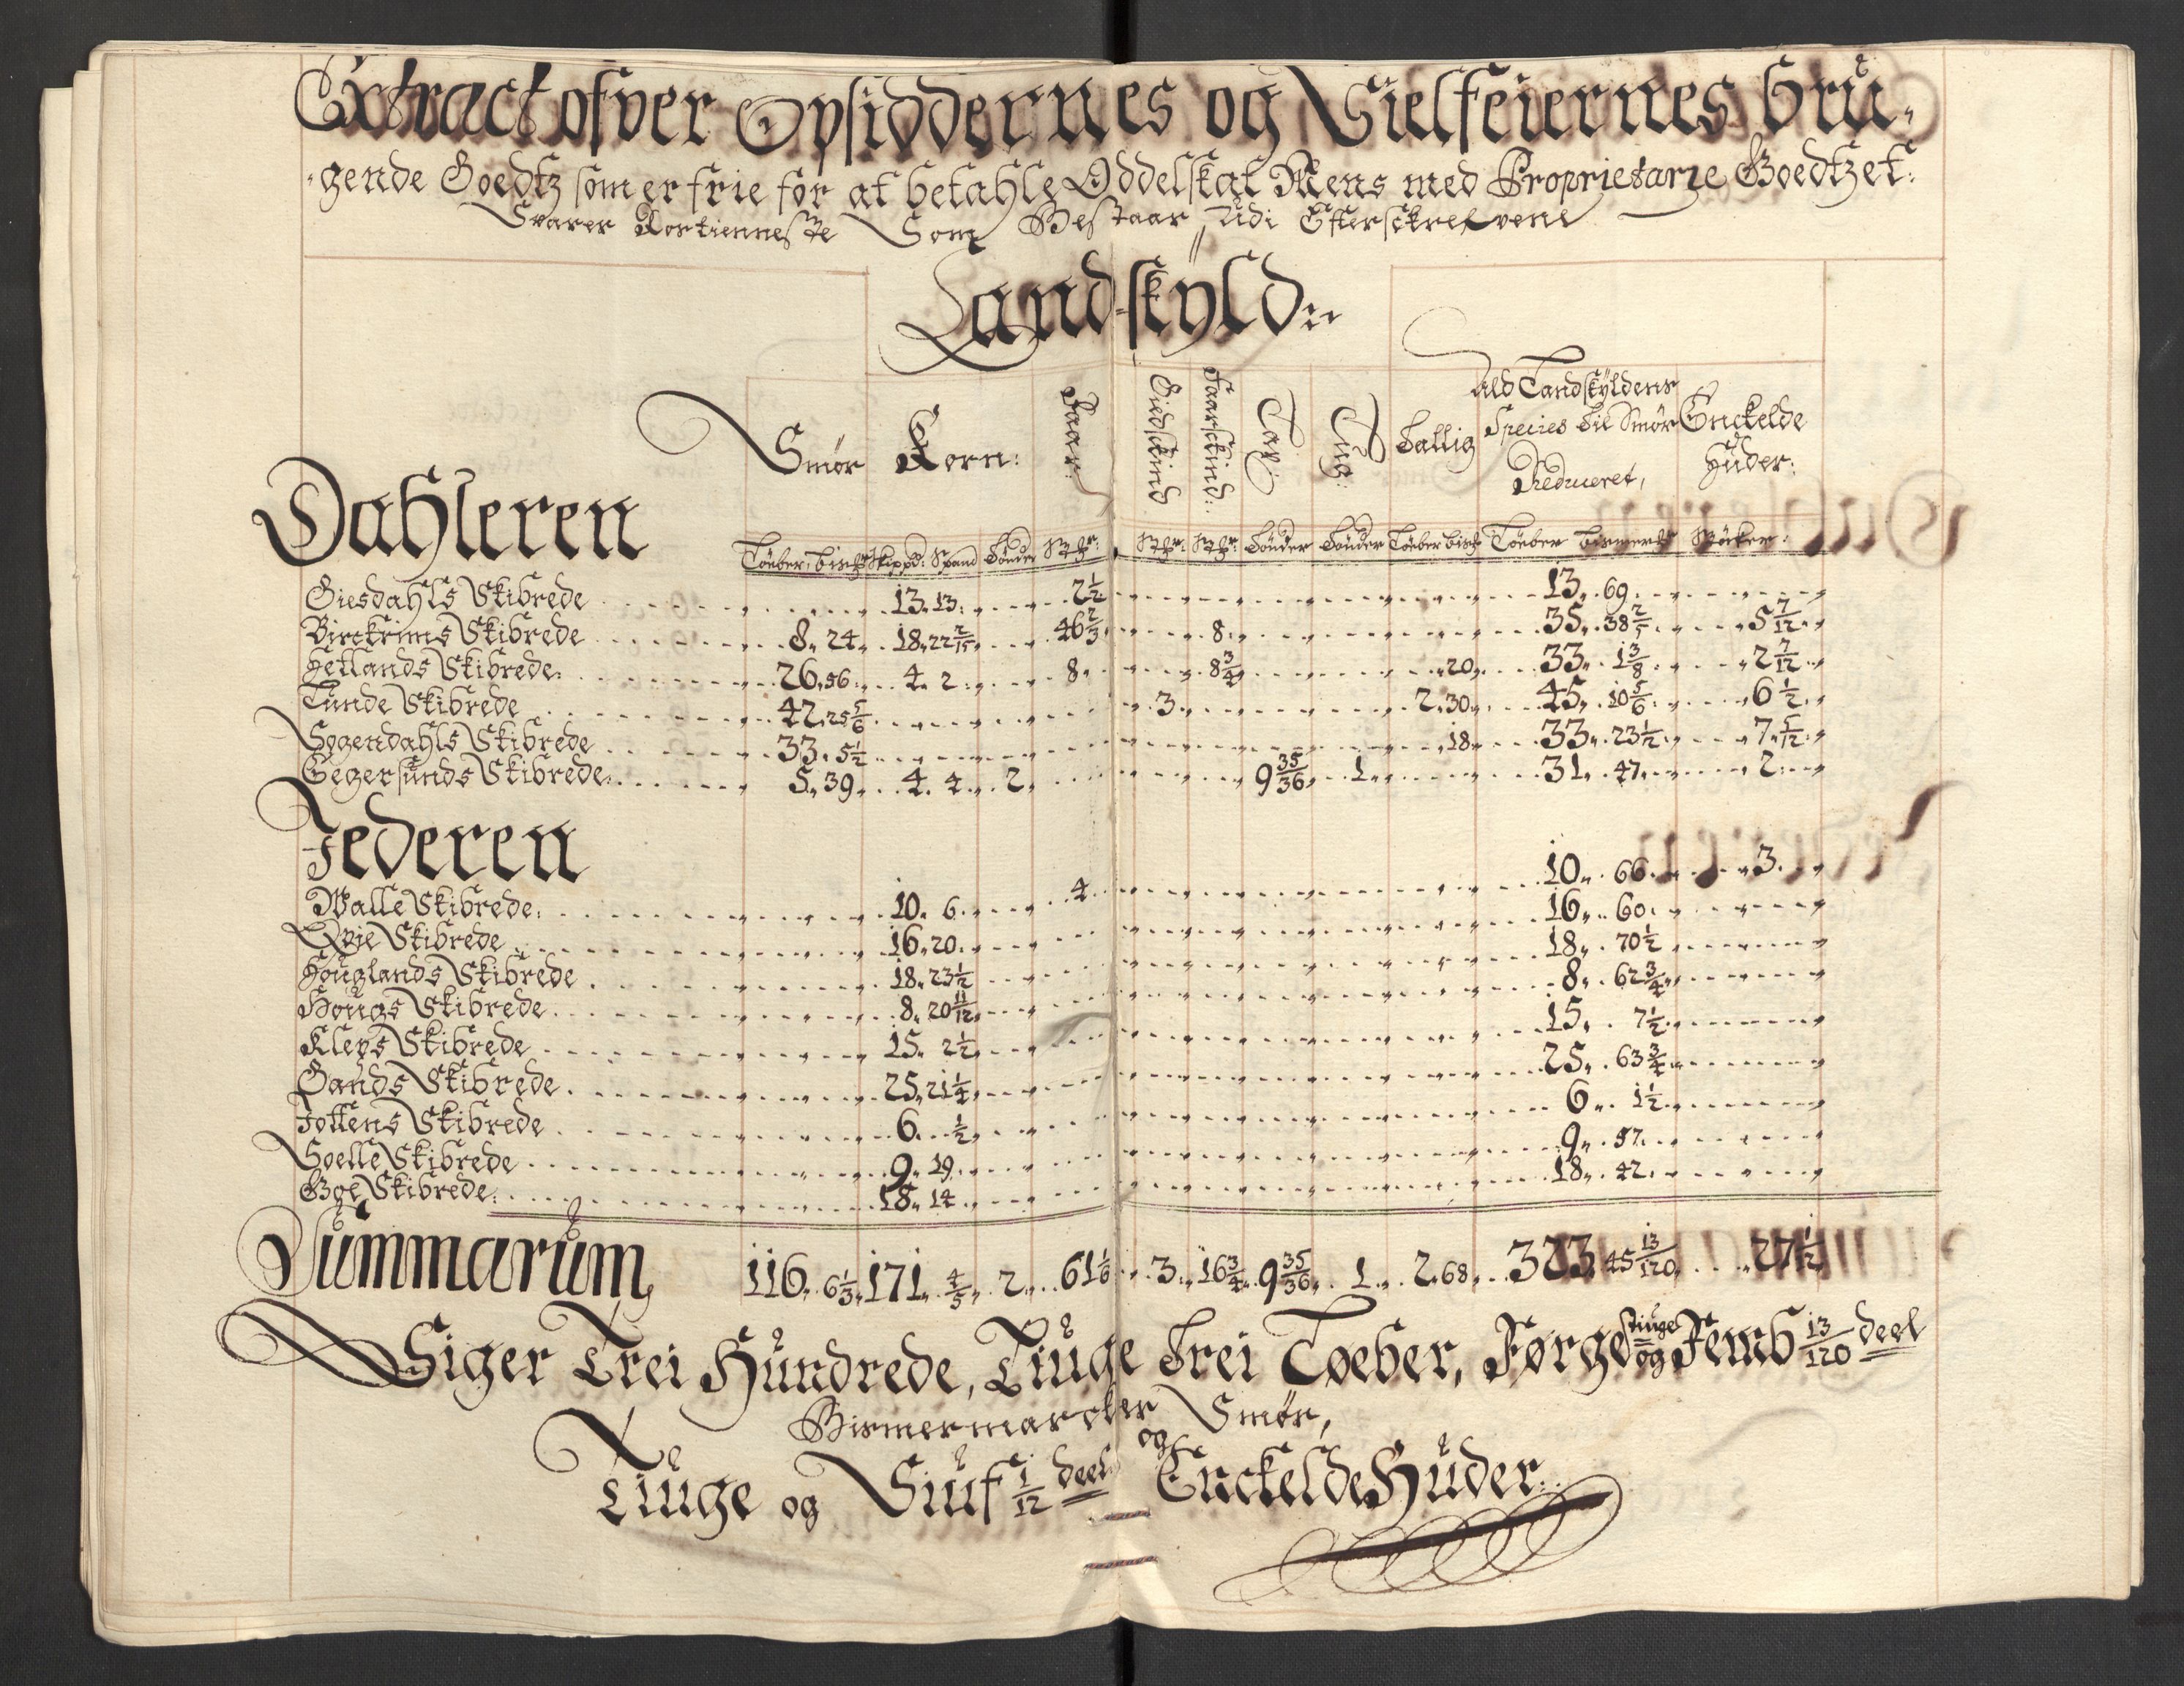 Extract ofver Opsiddernes og Sielfeiernes bru-
-gende Goedtz som er frie for at betahle Oddelskat Mens med Proprietarie Goedtzet:
Svarer Rostienneste Som Bestaar Udi Efterskrefvene
Land-skyld:
Smør Korn: Faar: Giedskind Faarskind: Lax: Lug: Tallig Ald Landskyldens Species til Smør Reduceret, Enckelde Huder:
Dahleren
Løeber: Skippd: Spand Tønder Tønder Tønder Løeber Løeber bismermr
Giesdahls Skibrede 13. 13. 2 1/2 13. 69.
Birckrims Skibrede 8. 24. 18. 22 2/15 46 2/3 8. 35. 38 2/5 5 7/12
Hetlands Skibrede: 26. 56. 4. 2. 8. 8 3/4 20. 33. 1 3/8 2 7/12
Lunde Skibrede 42. 25 5/6 3. 2. 30. 45. 10 5/6 6 1/2
Sogendahls Skibrede 33. 5 1/2 18. 33. 23 1/2 7. 5/12
Egersunds Skibrede: 5. 39. 4. 4. 2. 9 35/36 1. 31. 47. 2.
Jederen
Walle Skibrede: 10. 6. 4. 10. 66. 3.
Qvie Skibrede 16. 20. 16. 60.
Houglands Skibrede 18. 23 1/2 18. 70 1/2
Hougs Skibrede 8. 20 11/12 8. 62 3/4
Kleps Skibrede 15. 2 1/2 15. 7 1/2
Gands Skibrede 25. 21 1/4 25. 63 3/4
Jottens Skibrede 6. 1/2 6. 1 1/2
Soelle Skibrede 9. 19. 9. 57.
Boe Skibrede: 18. 14. 18. 42.
Summarum 116. 6 1/3 171. 4/5 2. 61 1/6 3. 16 3/4 9 35/36 1. 2. 68. 323. 45 13/120 27 1/12
Siger Trei Hundrede, Tiuge Trei Løeber, Førgestiuge og Femb 13/120 deel
Bismermarcker Smør,
og
Tiuge og Siuf 1/12 deel Enckelde Huder: